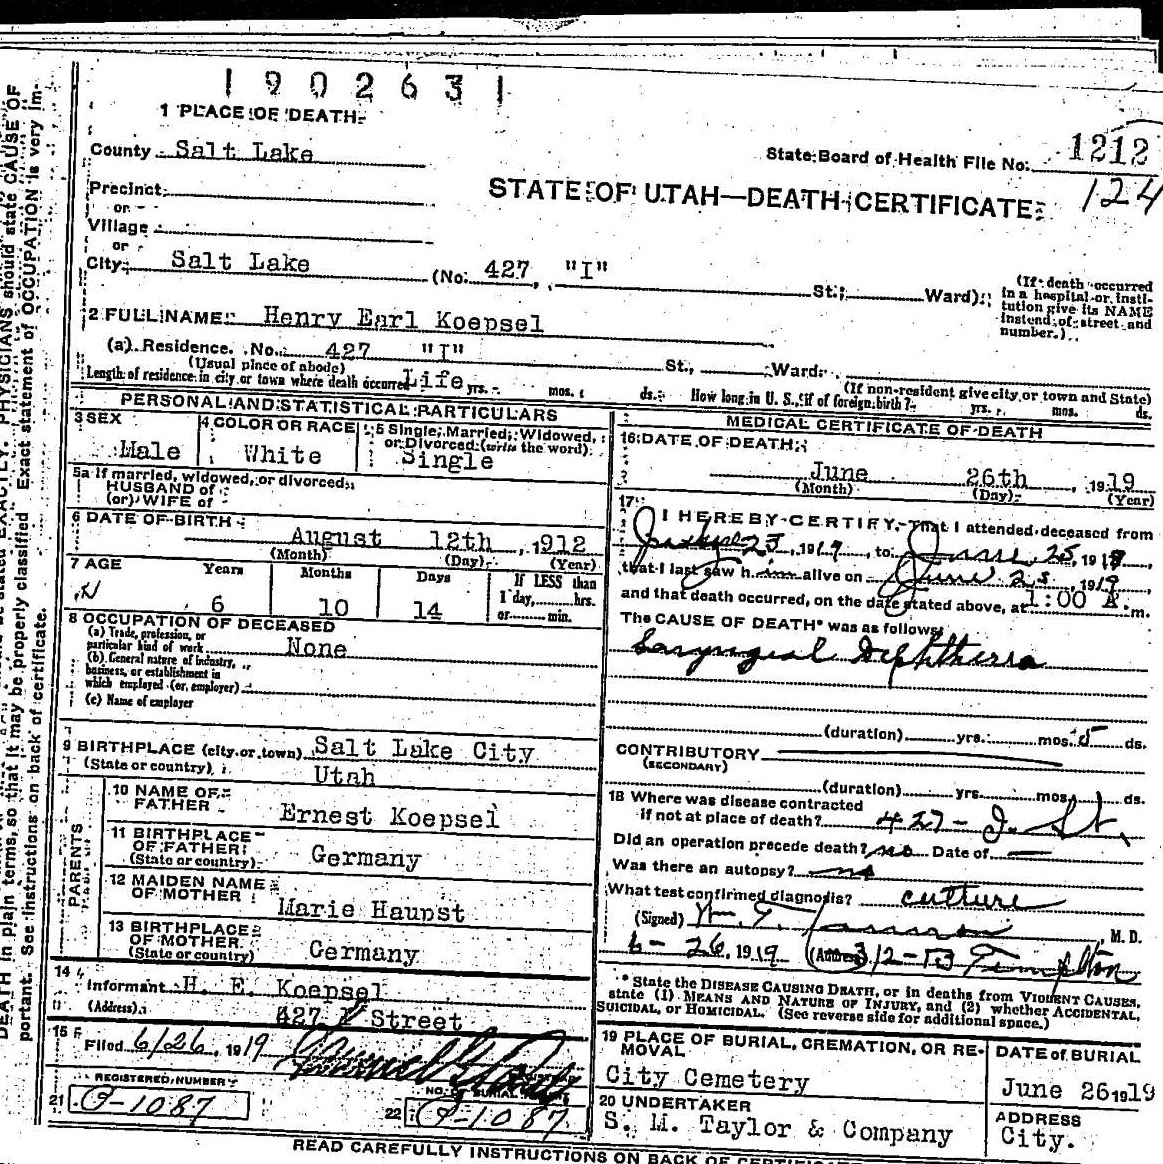 1902631
1 PLACE OF DEATH
County Salt Lake
State Board of Health File No. 1212
124
Precinct
or
STATE OF UTAH—DEATH CERTIFICATE
Village
or
City Salt Lake (No. 427, "I" St.; Ward)
(If death occurred in a hospital or institution give its NAME instead of street and number.)
2 FULL NAME Henry Earl Koepsel
(a) Residence. No. 427 "I" St., Ward.
(Usual place of abode) (If non-resident give city or town and State)
Length of residence in city or town where death occurred Life yrs. mos. ds. How long in U. S., if of foreign birth? yrs. mos. ds.
PERSONAL AND STATISTICAL PARTICULARS
3 SEX
Male
4 COLOR OR RACE
White
5 Single, Married, Widowed, or Divorced (write the word)
Single
5a If married, widowed, or divorced
HUSBAND of
(or) WIFE of
6 DATE OF BIRTH
August 12th, 1912
(Month) (Day) (Year)
7 AGE Years Months Days If LESS than
1 day, hrs.
6 10 14 or min.
8 OCCUPATION OF DECEASED
(a) Trade, profession, or
particular kind of work None
(b) General nature of industry,
business, or establishment in
which employed (or employer)
(c) Name of employer
9 BIRTHPLACE (city or town) Salt Lake City
(State or country) Utah
PARENTS
10 NAME OF FATHER Ernest Koepsel
11 BIRTHPLACE OF FATHER
(State or country) Germany
12 MAIDEN NAME OF MOTHER Marie Haupst
13 BIRTHPLACE OF MOTHER
(State or country) Germany
14
Informant H. E. Koepsel
(Address) 427 I Street
15
Filed 6/26, 1919
REGISTERED NUMBER
21 O-1087
22 O-1087
MEDICAL CERTIFICATE OF DEATH
16 DATE OF DEATH
June 26th, 1919
(Month) (Day) (Year)
17 I HEREBY CERTIFY, That I attended deceased from
23, 1919, to June 25, 1919
that I last saw him alive on June 25, 1919
and that death occurred, on the date stated above, at 1:00 A.m.
The CAUSE OF DEATH* was as follows:
Laryngeal Diphtheria
(duration) yrs. mos. 5 ds.
CONTRIBUTORY
(SECONDARY)
(duration) yrs. mos. ds.
18 Where was disease contracted
if not at place of death? 427 - I. St.
Did an operation precede death? no Date of
Was there an autopsy? no
What test confirmed diagnosis? culture
(Signed) Wm. T. M. D.
6-26, 1919 (Address) 312-13 Templton
* State the DISEASE CAUSING DEATH, or in deaths from VIOLENT CAUSES,
state (1) MEANS AND NATURE OF INJURY, and (2) whether ACCIDENTAL,
SUICIDAL, or HOMICIDAL. (See reverse side for additional space.)
19 PLACE OF BURIAL, CREMATION, OR REMOVAL
City Cemetery
DATE of BURIAL
June 26 1919
20 UNDERTAKER
S. M. Taylor & Company
ADDRESS
City.
READ CAREFULLY INSTRUCTIONS ON BACK OF
DEATH in plain terms, so that it may be properly classified. Exact statement of OCCUPATION is very im-
portant. See instructions on back of certificate.